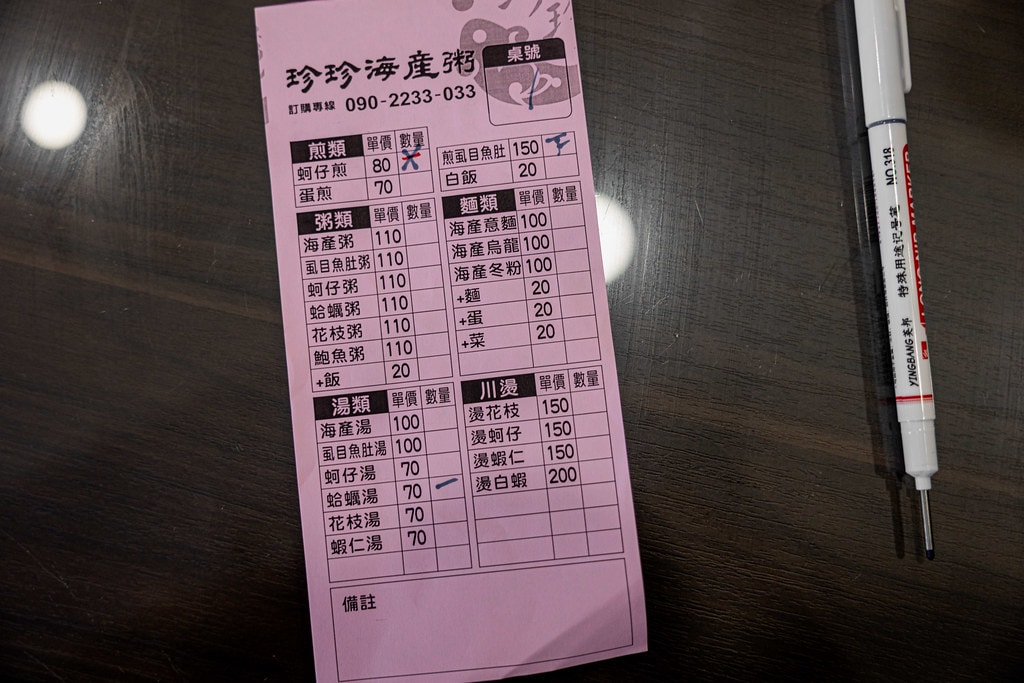 珍珍海產粥
訂購專線 090-2233-033
桌號
1
煎類 單價 數量
蚵仔煎 80
蛋煎 70
煎虱目魚肚 150 下
白飯 20
粥類 單價 數量
海產粥 110
虱目魚肚粥 110
蚵仔粥 110
蛤蠣粥 110
花枝粥 110
鮑魚粥 110
+飯 20
麵類 單價 數量
海產意麵 100
海產烏龍 100
海產冬粉 100
+麵 20
+蛋 20
+菜 20
湯類 單價 數量
海產湯 100
虱目魚肚湯 100
蚵仔湯 70
蛤蠣湯 70 一
花枝湯 70
蝦仁湯 70
川燙 單價 數量
燙花枝 150
燙蚵仔 150
燙蝦仁 150
燙白蝦 200
備註
NO.318
特殊用途记号笔
YINGBANG英邦